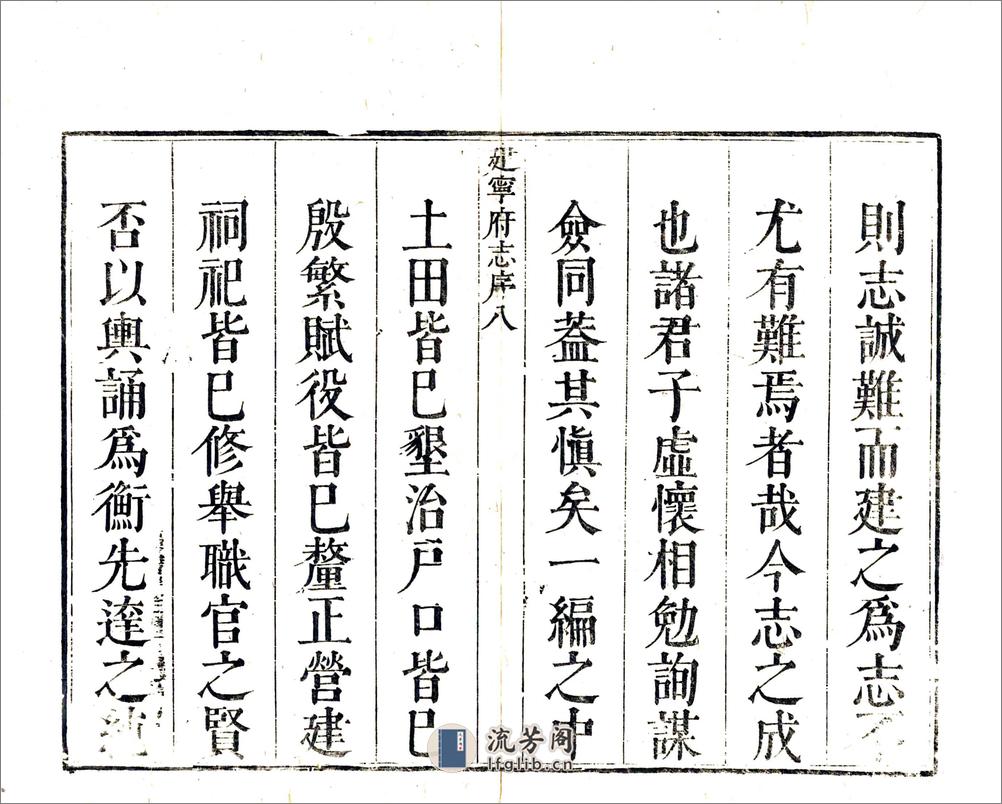 則志誠難而建之爲志不
尤有難焉者哉今志之成
也諸君子虛懷相勉詢謀
僉同葢其愼矣一編之中
建寧府志序八
土田皆已墾治戶口皆已
殷繁賦役皆已釐正營建
祠祀皆已修舉職官之賢
否以輿誦爲衡先達之
流芳阁
lfglib.cn